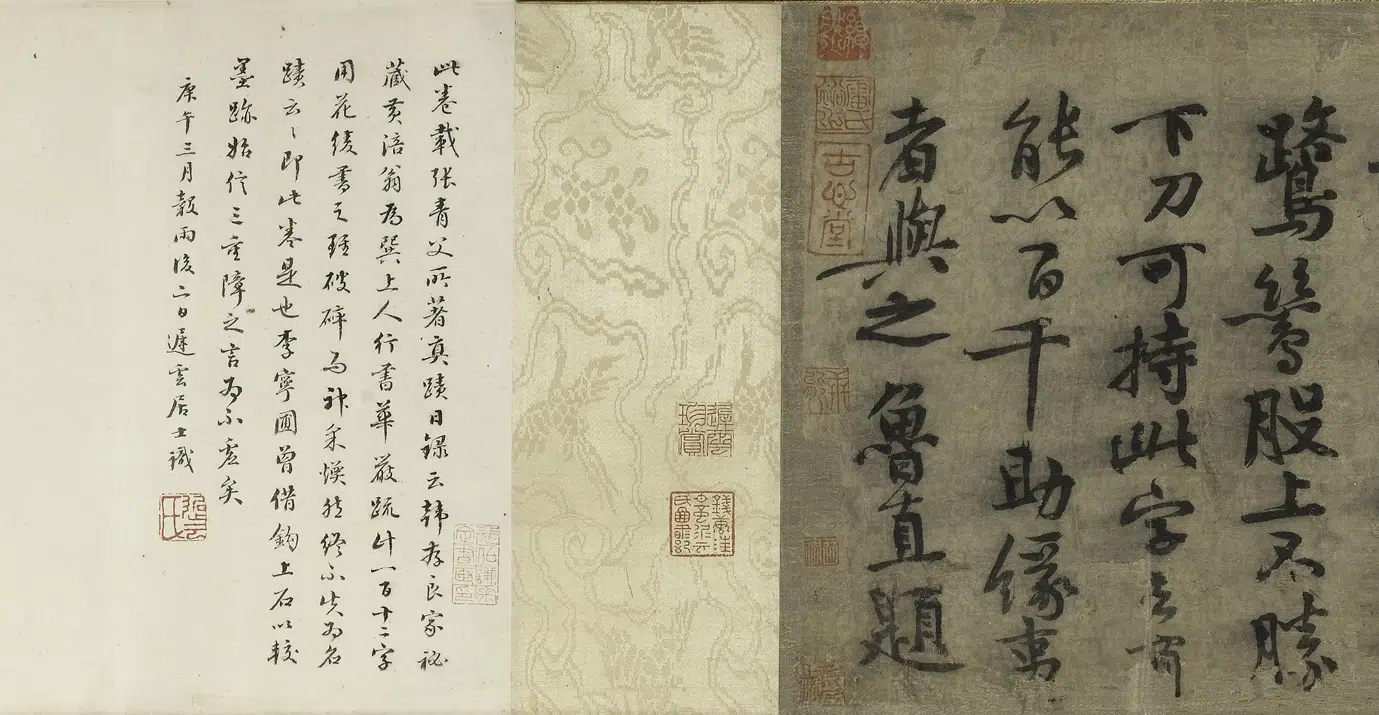 鷺鷥股上不勝
下刀可持此字去有
能以百千助緣事
者與之魯直題
遲雲珍賞
此卷載張青父所著真蹟日錄云韓存良家祕
藏黃涪翁為巽上人行書華嚴疏計一百十二字
用花綾書之雖破碎而神采煥然終不失為名
蹟云〻即此卷是也李寧圃曾借鉤上石以較
墨跡始信三重障之言為不虛矣
庚午三月穀雨後二日遲雲居士識